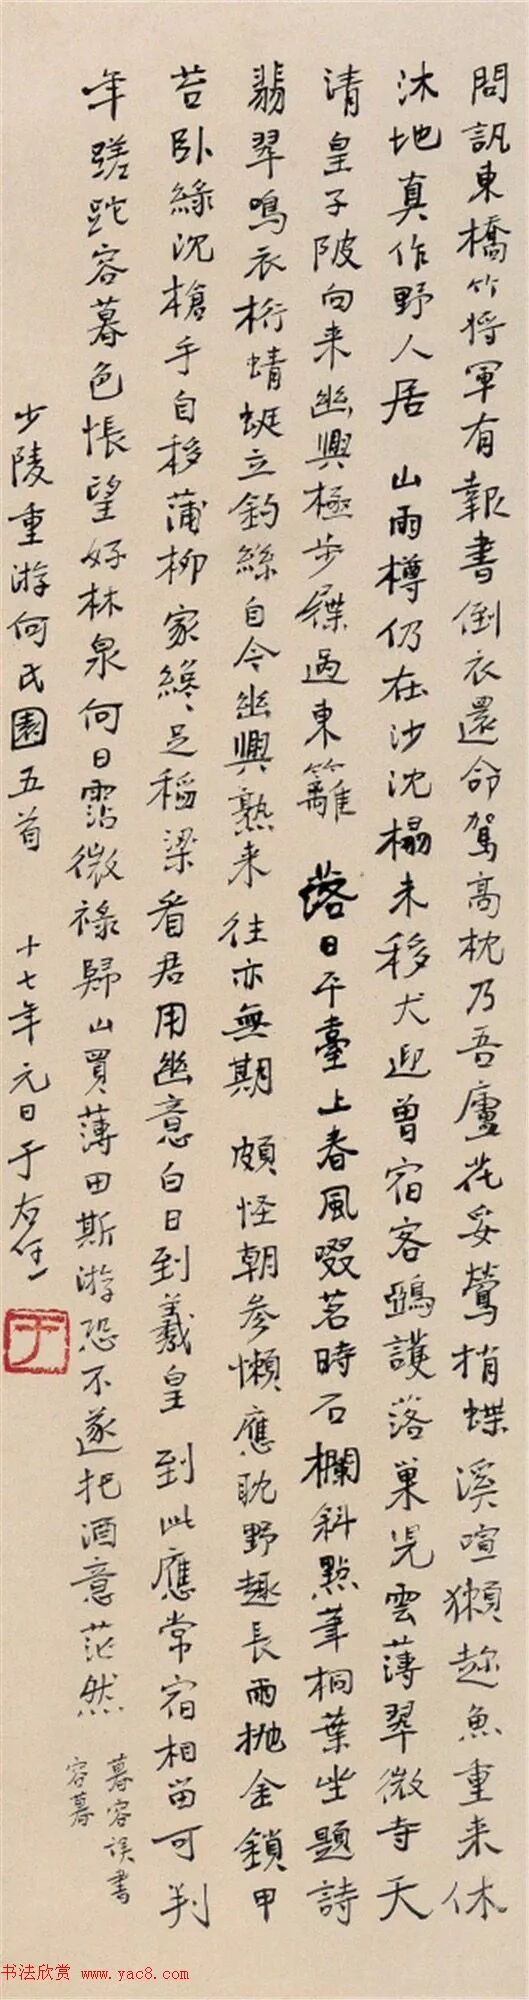 問訊東橋竹将軍有報書倒衣還命駕高枕乃吾廬花妥鶯捎蝶溪喧獺趂魚重来休
沐地真作野人居 山雨樽仍在沙沈榻未移犬迎曾宿客鵶護落巢児雲薄翠微寺天
清皇子陂向来幽興極步屧過東籬 落日平臺上春風啜茗時石欄斜點筆桐葉坐題詩
翡翠鳴衣桁蜻蜓立釣絲自今幽興熟来往亦無期 頗怪朝參懶應耽野趣長雨拋金鎖甲
苔卧綠沈槍手自移蒲柳家纔足稻梁看君用幽意白日到羲皇 到此應常宿相留可判
年蹉跎容暮色悵望好林泉何日霑微祿歸山買薄田斯游恐不遂把酒意茫然
暮容误書
容暮
少陵重游何氏園五首 十七年元日于右任
于
书法欣赏 www.yac8.com